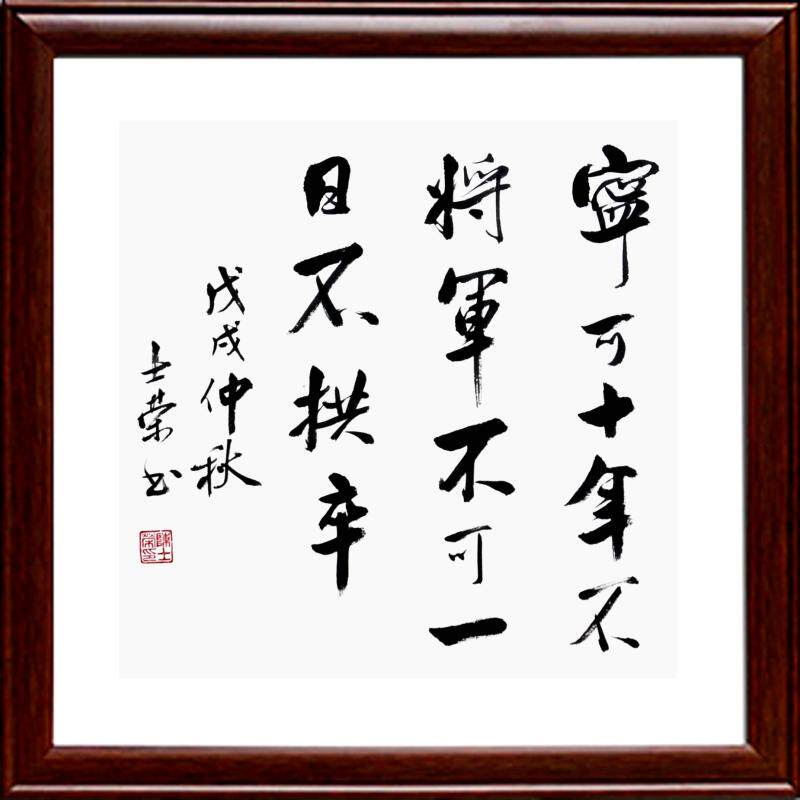 寧可十年不
將軍不可一
日不拱卒
戊戌仲秋
士荣书
陳士
榮印